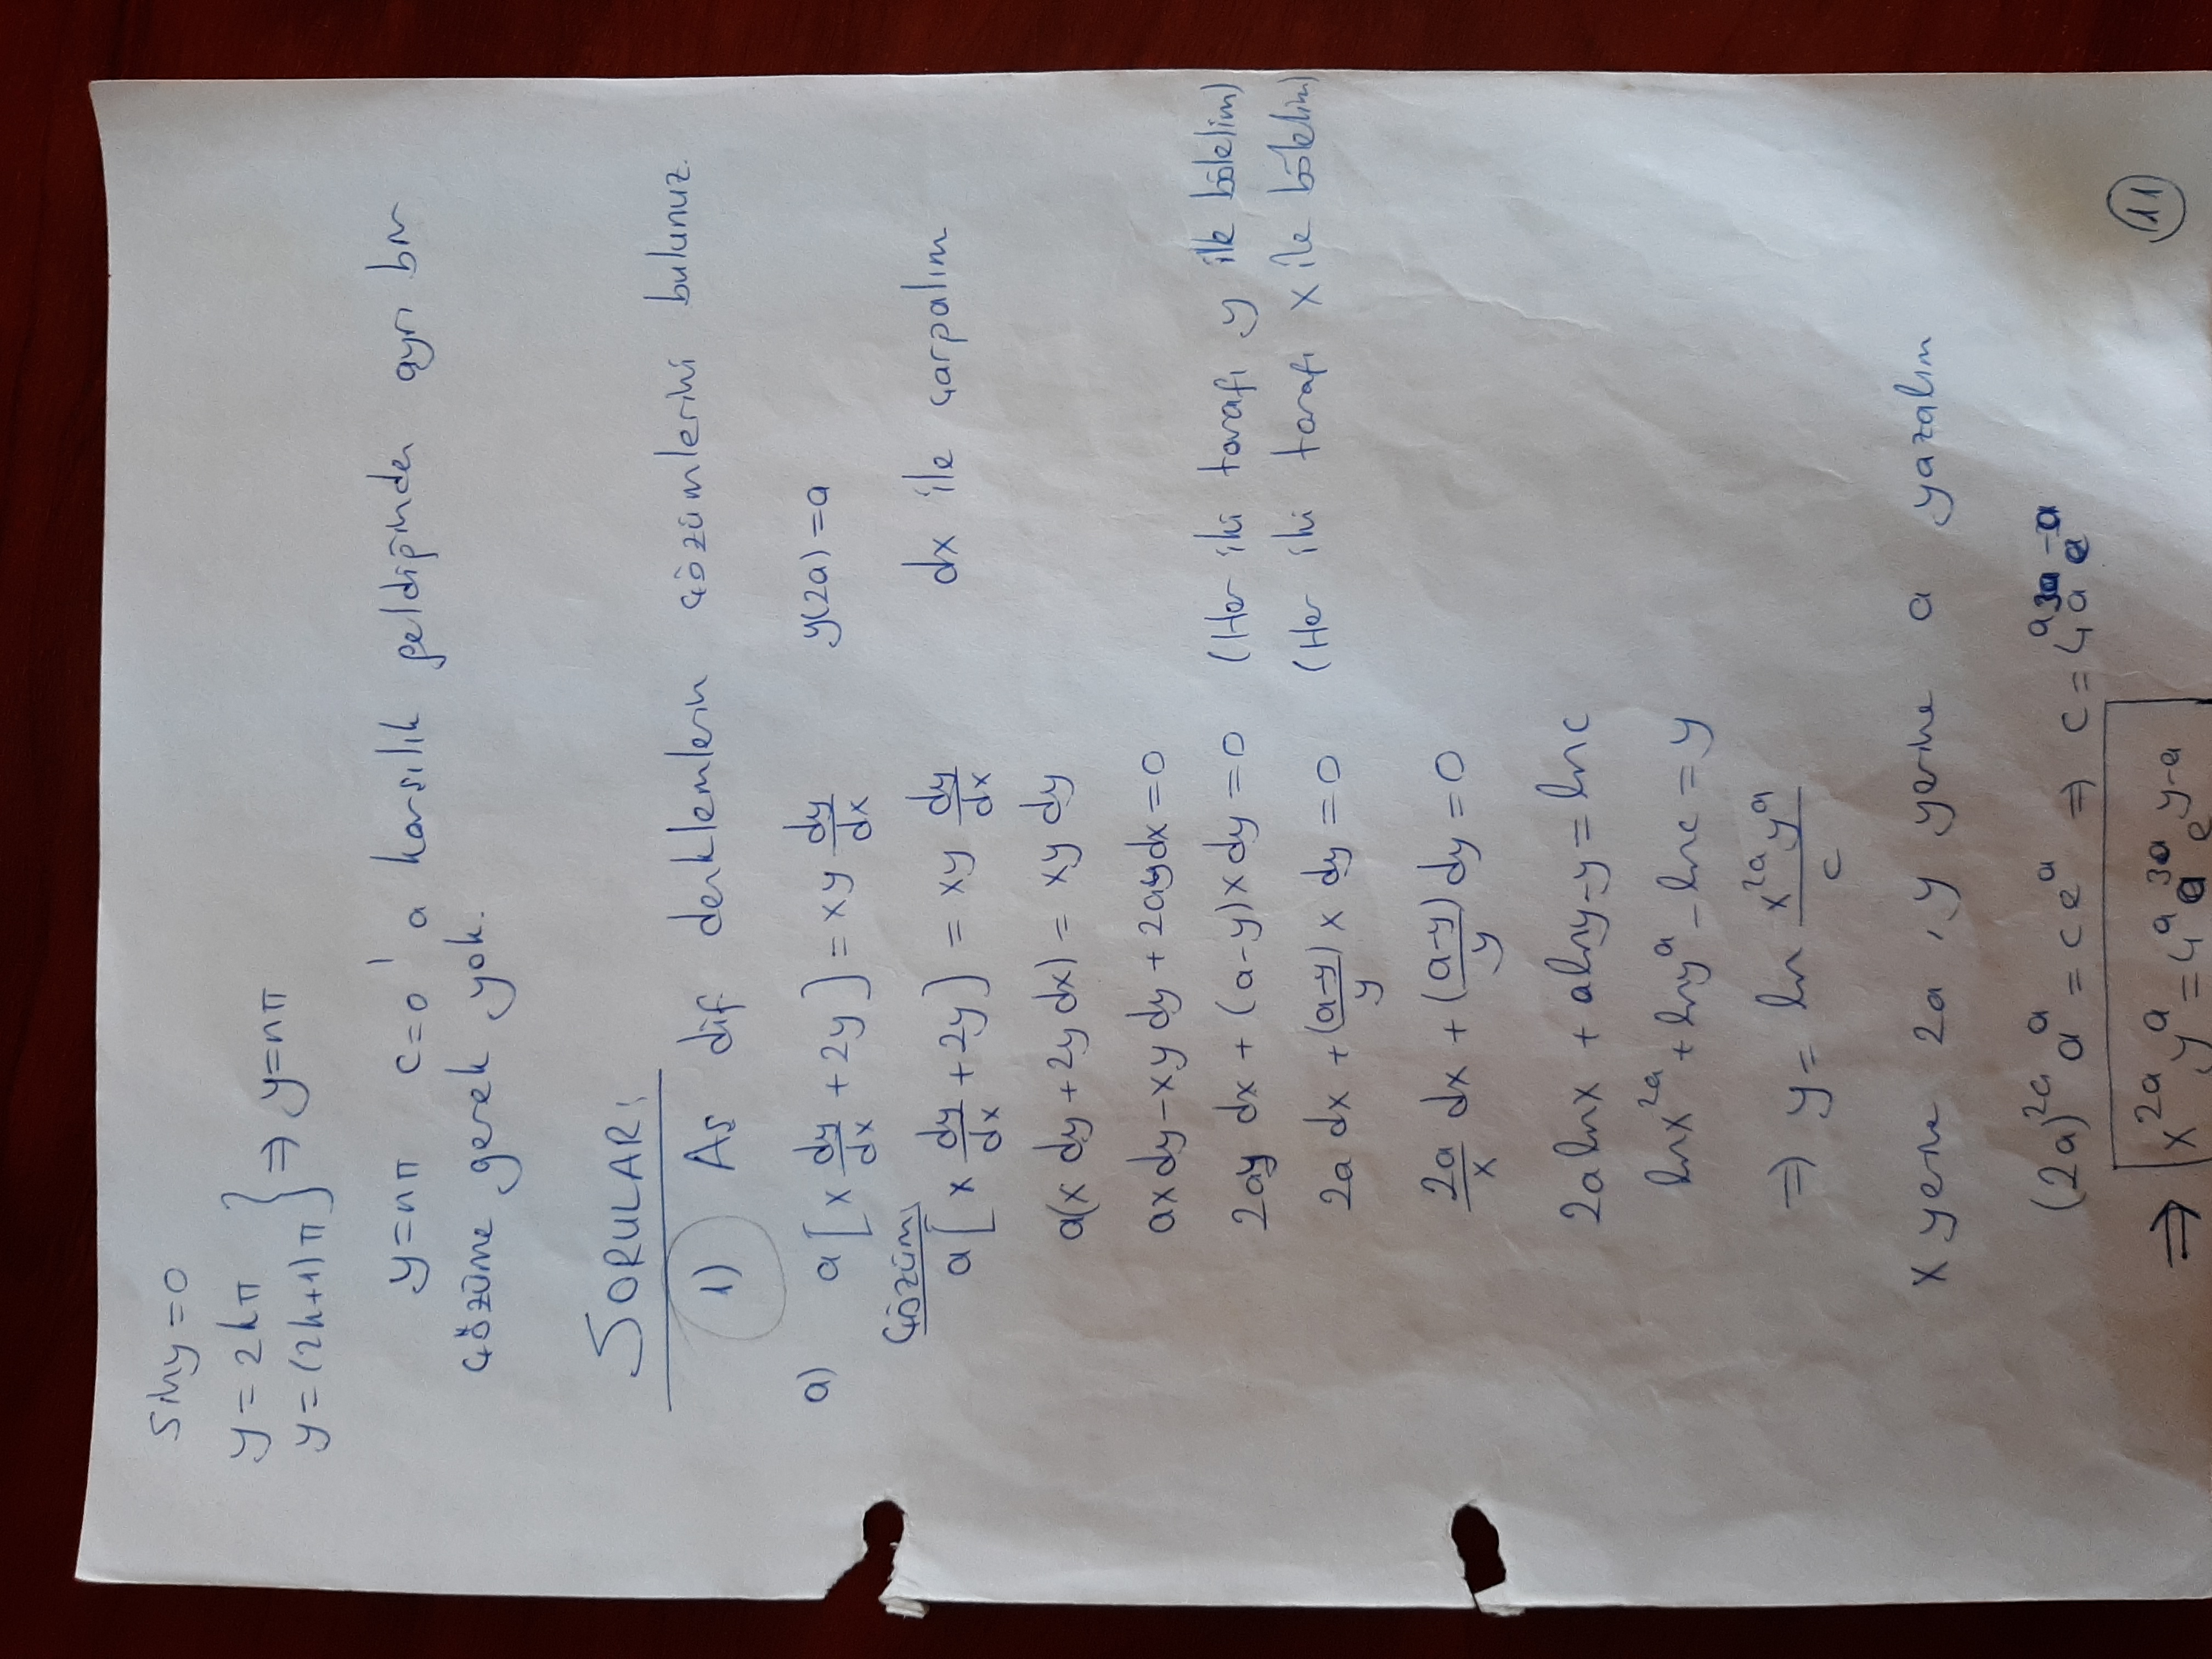 Siny = 0
y = 2kπ
y = (2k+1)π } ⇒ y = nπ
y = nπ c=0' a karşılık geldiğinden ayrı bir
çözüme gerek yok.
SORULAR:
1) Aş dif. denklemlerin çözümlerini bulunuz.
a) a[x dy/dx + 2y] = xy dy/dx y(2a) = a
Çözüm:
a[x dy/dx + 2y] = xy dy/dx dx ile çarpalım
a(x dy + 2y dx) = xy dy
ax dy - xy dy + 2ay dx = 0
2ay dx + (a-y)x dy = 0 (Her iki tarafı y ile bölelim)
2a dx + (a-y)/y x dy = 0 (Her iki tarafı x ile bölelim)
2a/x dx + (a-y)/y dy = 0
2a lnx + a lny - y = lnc
lnx^2a + lny^a - lnc = y
⇒ y = ln x^2a y^a / c
x yerine 2a, y yerine a yazalım
(2a)^2a a^a = c e^a ⇒ c = 4^a a^3a e^-a
⇒ x^2a y^a = 4^a a^3a e^y-a
11